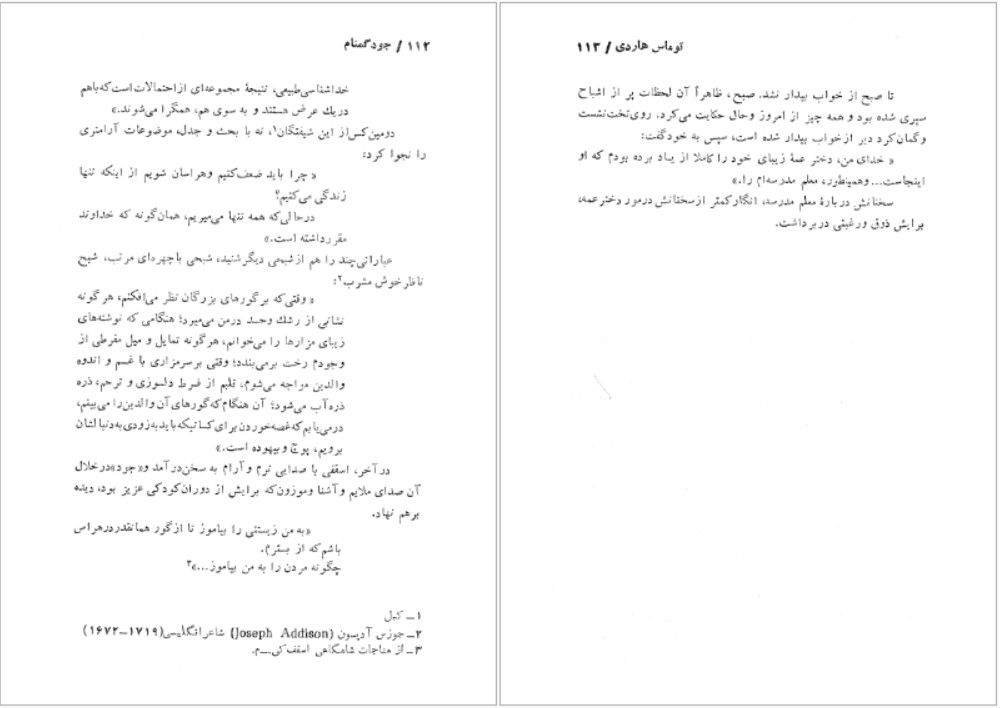 ۱۱۲ / جود گمنام
خداشناسی طبیعی، نتیجهٔ مجموعه‌ای از احتمالات است که باهم
دریك عرض هستند و به سوی هم، همگرا می‌شوند.»
دومین کس از این شیفتگان۱، نه با بحث و جدل، موضوعات آرامتری
را نجوا کرد:
« چرا باید ضعف کنیم و هراسان شویم از اینکه تنها
زندگی می‌کنیم؟
درحالی‌که همه تنها می‌میریم، همان‌گونه که خداوند
مقرر داشته است.»
عباراتی چند را هم از شبحی دیگر شنید، شبحی باچهره‌ای مرتب، شبح
ناظر خوش مشرب۲:
« وقتی‌که بر گورهای بزرگان نظر می‌افکنم، هر گونه
نشانی از رشك وحسد درمن می‌میرد؛ هنگامی که نوشته‌های
زیبای مزارها را می‌خوانم، هر گونه تمایل و میل مفرطی از
وجودم رخت برمی‌بندد؛ وقتی بر سرمزاری با غم و اندوه
والدین مواجه می‌شوم، قلبم از فرط دلسوزی و ترحم، ذره
ذره آب می‌شود؛ آن هنگام که گورهای آن والدین را می‌بینم،
درمی‌یابم که غصه خوردن برای کسانیکه باید به زودی به دنبالشان
برویم، پوچ وبیهوده است.»
در آخر، اسقفی با صدایی نرم و آرام به سخن در آمد و«جود»درخلال
آن صدای ملایم و آشنا وموزون که برایش از دوران کودکی عزیز بود، دیده
برهم نهاد.
«به من زیستنی را بیاموز تا ازگور همانقدر درهراس
باشم که از بسترم.
چگونه مردن را به من بیاموز...»۳
۱ـ کبل
۲ـ جوزس آدیسون (Joseph Addison) شاعر انگلیسی(۱۷۱۹–۱۶۷۲)
۳ـ از مناجات شامگاهی اسقف
توماس هاردی / ۱۱۳
تا صبح از خواب بیدار نشد. صبح، ظاهراً آن لحظات پر از اشباح
سپری شده بود و همه چیز از امروز وحال حکایت می‌کرد. روی تخت نشست
و گمان کرد دیر از خواب بیدار شده است، سپس به خود گفت:
« خدای من، دختر عمهٔ زیبای خود را کاملا از یاد برده بودم که او
اینجاست... وهمینطور، معلم مدرسه‌ام را.»
سخنانش دربارهٔ معلم مدرسه، انگار کمتر از سخنانش درمورد دخترعمه،
برایش ذوق ورغبتی دربرداشت.